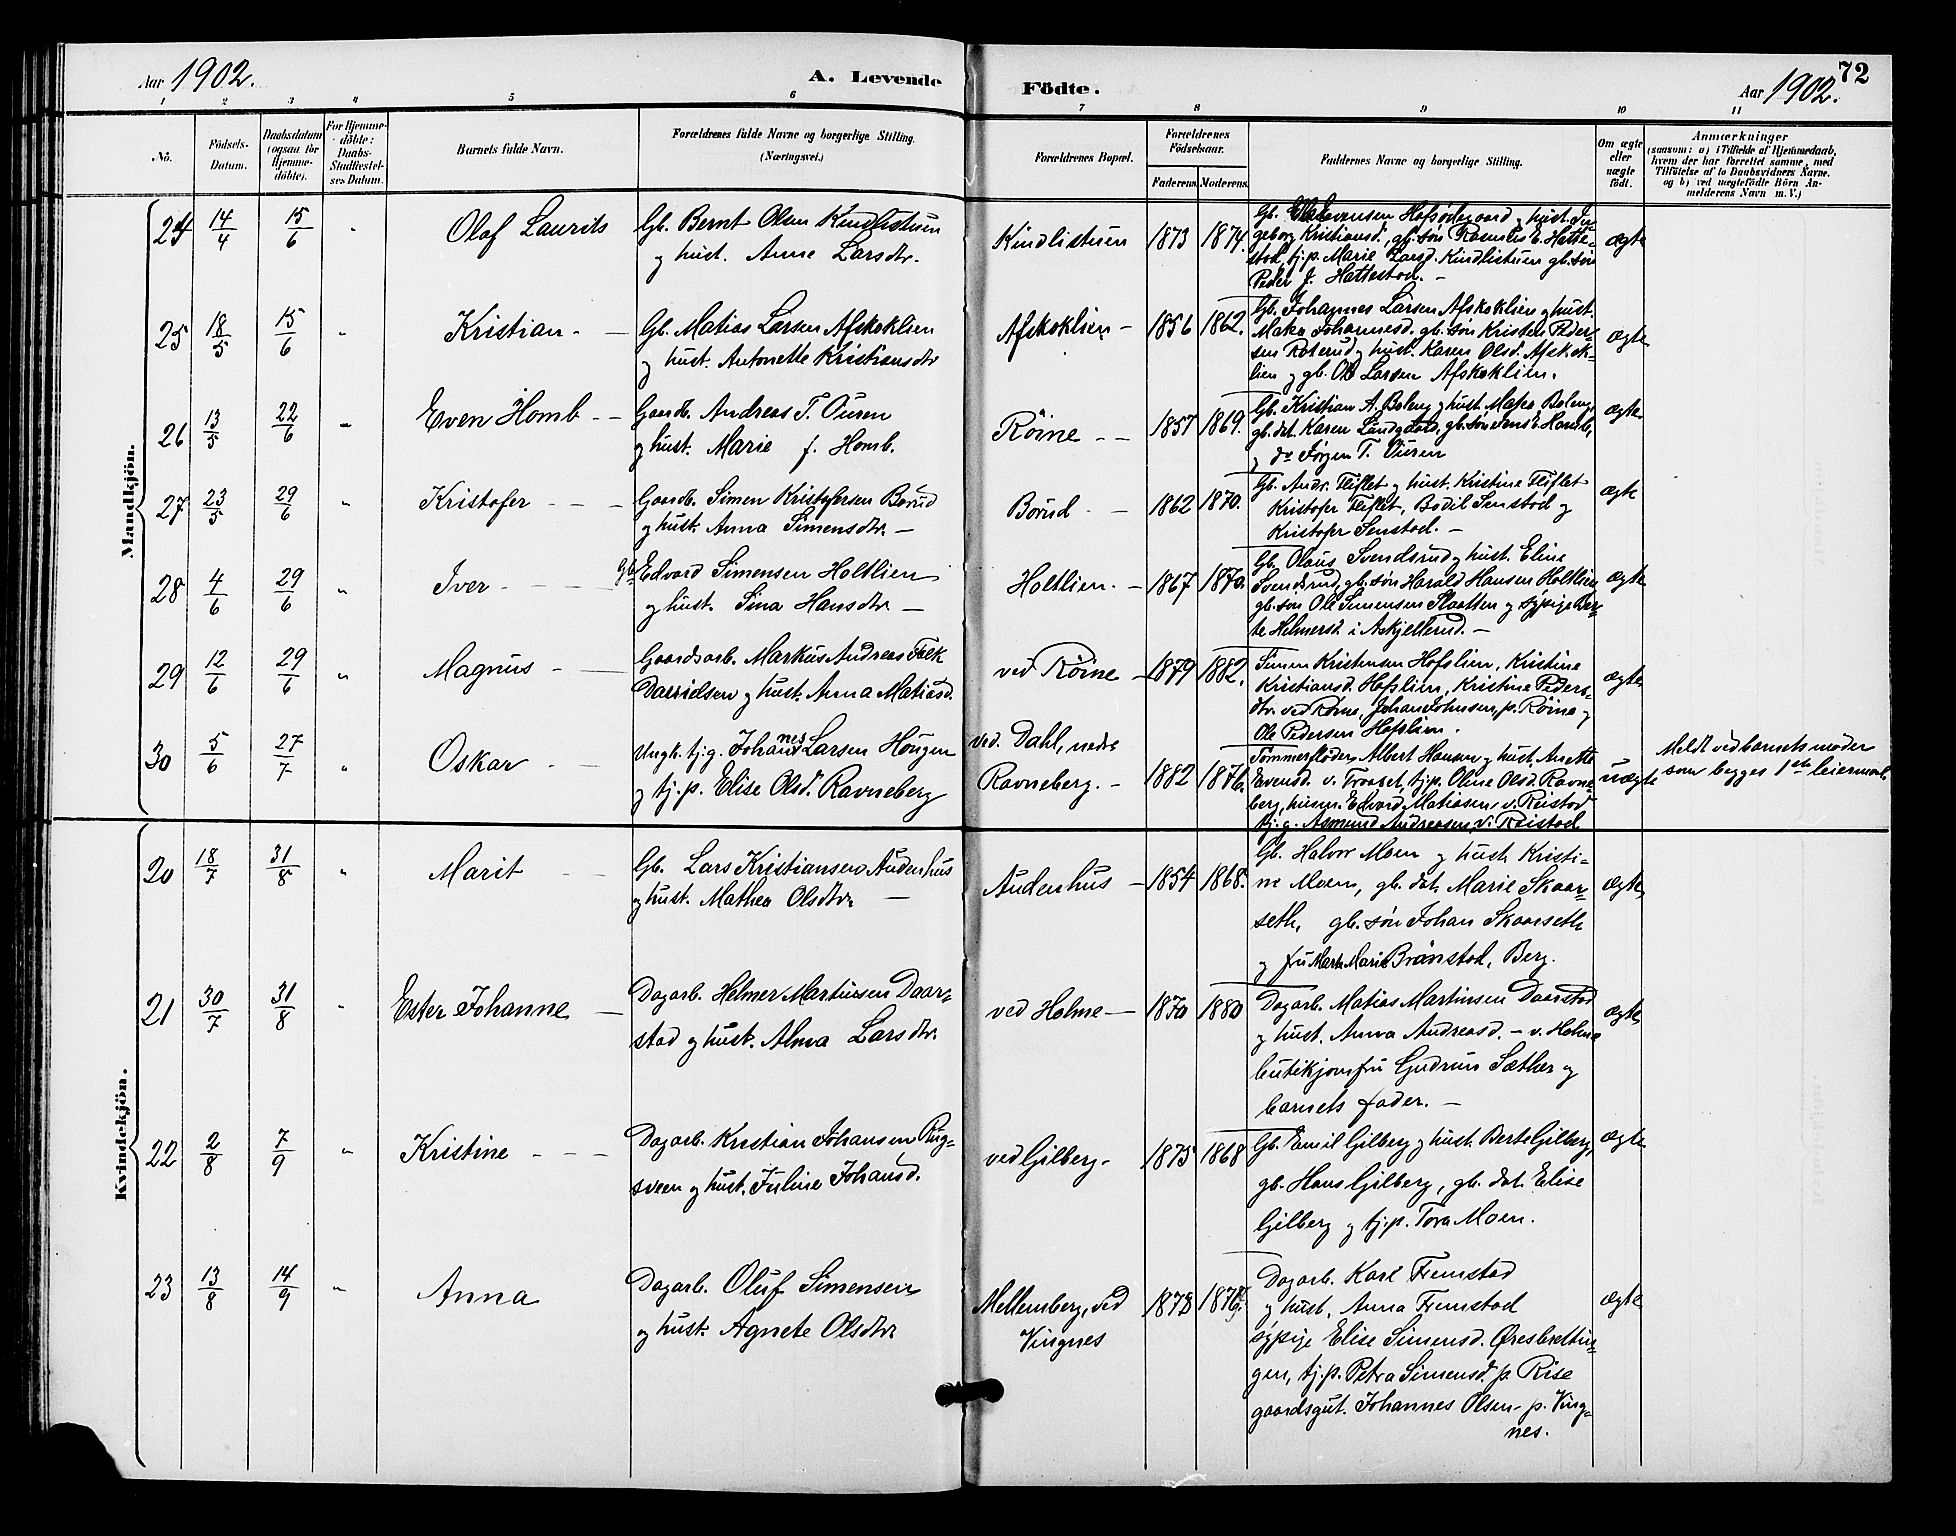 Aar 1902.
A. Levende
Födte.
Aar 1902.
72
1 2 3 4 5 6 7 8 9 10 11
No.
Födsels-
Datum.
Daabsdatum
(ogsaa for
Hjemme-
döbte).
For Hjemme-
döbte:
Daabs-
Stadfæstel-
ses Datum.
Barnets fulde Navn.
Forældrenes fulde Navne og borgerlige Stilling.
(Næringsvei.)
Forældrenes Bopæl.
Forældrenes
Födselsaar.
Faderens. Moderens.
Faddernes Navne og borgerlige Stilling.
Om ægte
eller
uægte
födt.
Anmærkninger
(saasom: a) i Tilfælde af Hjemmedaab,
hvem der har forrettet samme, med
Tilföielse af to Daabsvidners Navne.
og b) ved uægtefödte Börn An-
melderens Navn m.V.)
Mandkjön.
24 14/4 15/6 " Olaf Laurits
Gb. Bernt Olsen Kindlistuen
og hust. Anne Larsdtr.
Kindlistuen 1873 1874.
Gb. Evensen Hofsödegaard og hust. In-
geborg Kristiansd., gb. søn Rasmus E. Hatte-
stad, tj.p. Marie Larsd. Kindlistuen gb. søn
Peder J. Hattestad. –
ægte
25 18/5 15/6 " Kristian – –
Gb. Matias Larsen Afskoklien
og hust. Antonette Kristiansdtr
Afskoklien – 1856 1862.
Gb. Johannes Larsen Afskoklien og hust.
Johannesd. gb. søn Kristen Peder-
sen Roterud og hust. Karen Olsd. Afskok-
lien og gb. Ole Larsen Afskoklien.
ægte
26 13/5 22/6 " Even Homb – –
Gaardb. Andreas T. Ouren
og hust. Marie f. Homb.
Röine – – 1857 1869.
Gb. Kristian A. Boleng og hust. Boleng,
gb. dat. Karen Landgaard, gb. søn Jens E. Homb,
og do Jörgen T. Ouren
ægte
27 23/5 29/6 " Kristofer – – –
Gaardb. Simen Kristofersen Borud
og hust. Anna Simensdtr. –
Borud – – 1862 1870.
Gb. Andr. Fliflet og hust. Kristine Fliflet
Kristofer Fliflet, Bodil Senstad og
Kristofer Senstad. –
ægte
28 4/6 29/6 " Iver – – –
Gb. Edvard Simensen Holtlien
og hust. Sina Hansdtr. –
Holtlien. – 1867 1870.
Gb. Olaus Svendsrud og hust. Eline
Svendsrud, gb. søn Harald Hansen Holtlien
gb. søn Ole Simensen Slaatten og sypige Ber-
te Helmersd. i Askjellerud. –
ægte
29 12/6 29/6 " Magnus – –
Gaardsarb. Markus Andreas Falk
Davidsen og hust. Anna Matiasd.
ved Röine – 1879 1882.
Simen Kristensen Hofslien, Kristine
Kristiansd. Hofslien, Kristine Peders-
dtr. ved Röine, Johan Johnsen, p. Röine og
Ole Pedersen Hofslien.
ægte
30 5/6 27/7 " Oskar – –
Ungk. tj.g. Johannes Larsen Hougen
og tj.p. Elise Olsd. Ravneberg
ved. Dahl, nedre
Ravneberg. – 1882 1876.
Tömmerflöder Albert Hansen og hust. Anette
Evensd. v. Traaset, tj.p. Oline Olsd. Ravne-
berg, husm. Edvard Matiasen, v. Reistad
tj.g. Asmund Andreasen, v. Reistad
uægte
Meldt ved barnets moder
som begges 1ste leiermaal.
Kvindekjön.
20 18/7 31/8 " Marit – –
Gb. Lars Kristiansen Audenhus
og hust. Mathea Olsdtr. –
Audenhus – 1854 1868.
Gb. Halvor Moen og hust. Kristi-
ne Moen, gb. dat. Marie Skaar-
seth, gb. søn Johan Skaarseth
og fru Marie Brönstad, Berg.
ægte
21 30/7 31/8 " Ester Johanne –
Dagarb. Helmer Martinsen Daar-
stad og hust. Alma Larsdtr.
ved Holme – 1870 1880
Dagarb. Matias Martinsen Daarstad
og hust. Anna Andreasd. – v. Holme
butikjomfru Gudrun Sæther og
barnets fader. –
ægte
22 2/8 7/9 " Kristine – – –
Dagarb. Kristian Johansen Rug-
sveen og hust. Juline Johansd.
ved Gilberg – 1875 1868
Gb. Emil Gilberg og hust. Berte Gilberg,
gb. Hans Gilberg, gb. dat. Elise
Gilberg og tj.p. Tora Moen.
ægte
23 13/8 14/9 " Anna
Dagarb. Oluf Simensen
og hust. Agnete Olsdtr.
Mellemberg, ved
Vingnes
1878
Dagarb. Karl Fremstad
og hust. Anna Fremstad
sypige Elise Simensd. Öresbrettin-
gen, tj.p. Petra Simensd. p. Rise
gaardsgut. Johannes Olsen p. Ving-
nes.
ægte